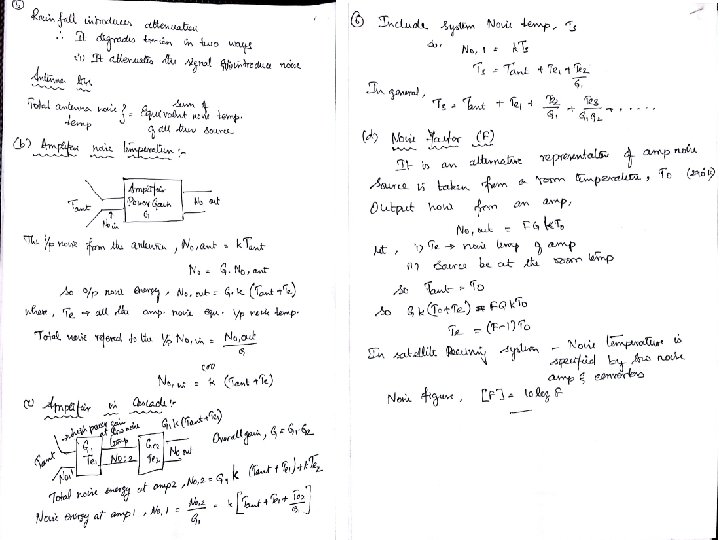 (5)
Rain fall introduces attenuation
∴ It degrades tx-ion in two ways
(ii) It attenuates the signal & introduce noise
Antenna loss
Total antenna noise temp } = sum of Equivalent noise temp. of all these source
(b) Amplifier noise temperature :-
Amplifier
Power Gain
G
Tant
No in
No out
The i/p noise from the antenna, No,ant = k Tant
No = G. No,ant
So o/p noise energy, No,out = G.k (Tant + Te)
where, Te → all the amp. noise equ. i/p noise temp.
Total noise refered to the i/p No,in = No,out / G
(or)
No,in = k (Tant + Te)
(c) Amplifier in Cascade :-
G1k(Tant+Te1)
Tant
G1
Te1
No,2
G2
Te2
No out
No,1
Overall gain, G = G1.G2
Total noise energy at amp2, No,2 = G1 k (Tant + Te1) + kTe2
Noise energy at amp1, No,1 = No,2 / G1 = k [Tant + Te1 + Te2 / G1]
(6)
Include System Noise temp, Ts
So, No,1 = kTs
Ts = Tant + Te1 + Te2 / G1
In general,
Ts = Tant + Te1 + Te2 / G1 + Te3 / G1G2 + .....
(d) Noise Factor (F)
It is an alternative representation of amp noise
Source is taken from a room temperature, To (290k)
Output noise from an amp,
No,out = FGkTo
Let, i) Te → noise temp of amp
ii) Source be at the room temp
So Tant = To
So Gk(To+Te) = FGkTo
Te = (F-1)To
In satellite Receiving System - Noise Temperature is
specified by the noise
amp & converters
Noise figure, [F] = 10 log F